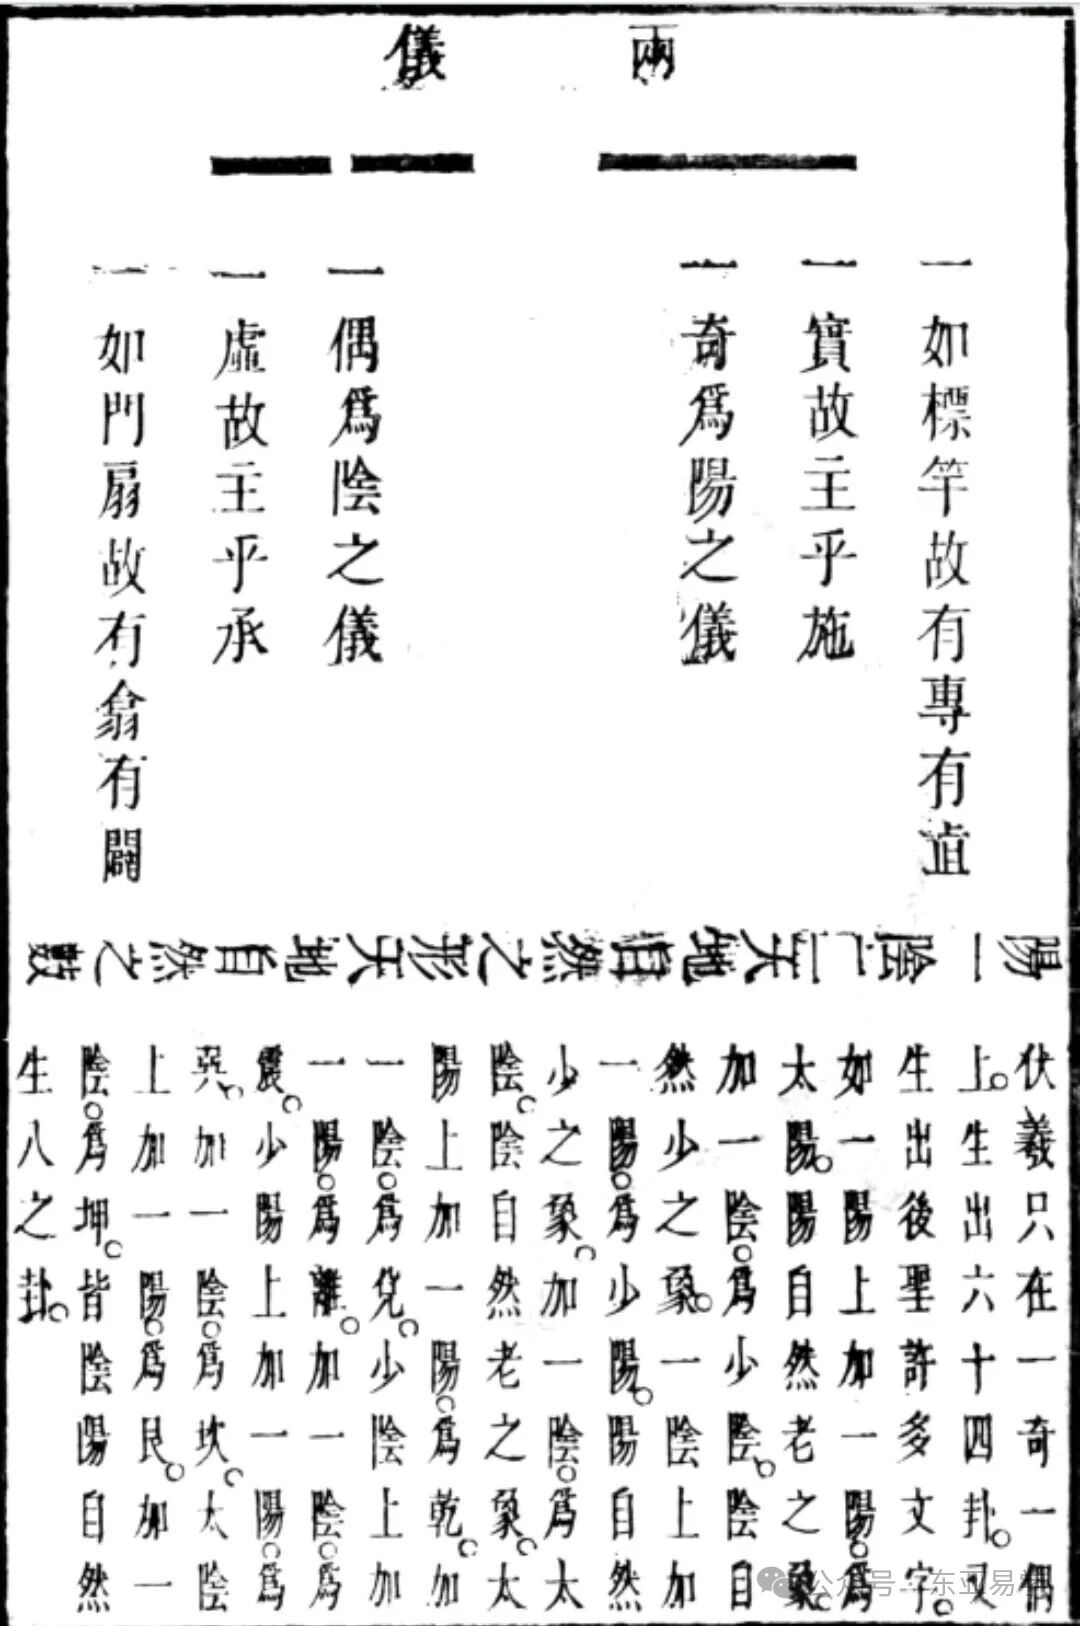 兩儀
一如標竿故有專有直
一實故主乎施
一奇爲陽之儀
一偶爲陰之儀
一虛故主乎承
一如門扇故有翕有闢
陽一陰二天地自然之形天地自然之數
伏羲只在一奇一偶
上。生出六十四卦。又
生出後聖許多文字。
如一陽上加一陽。爲
太陽。陽自然老之象。
加一陰。爲少陰。陰自
然少之象。一陰上加
一陽。爲少陽。陽自然
少之象。加一陰。爲太
陰。陰自然老之象。太
陽上加一陽。爲乾。加
一陰。爲兌。少陰上加
一陽。爲離。加一陰。爲
震。少陽上加一陽。爲
巽。加一陰。爲坎。太陰
上加一陽。爲艮。加一
陰。爲坤。皆陰陽自然
生八之卦。
公众号 东亚易